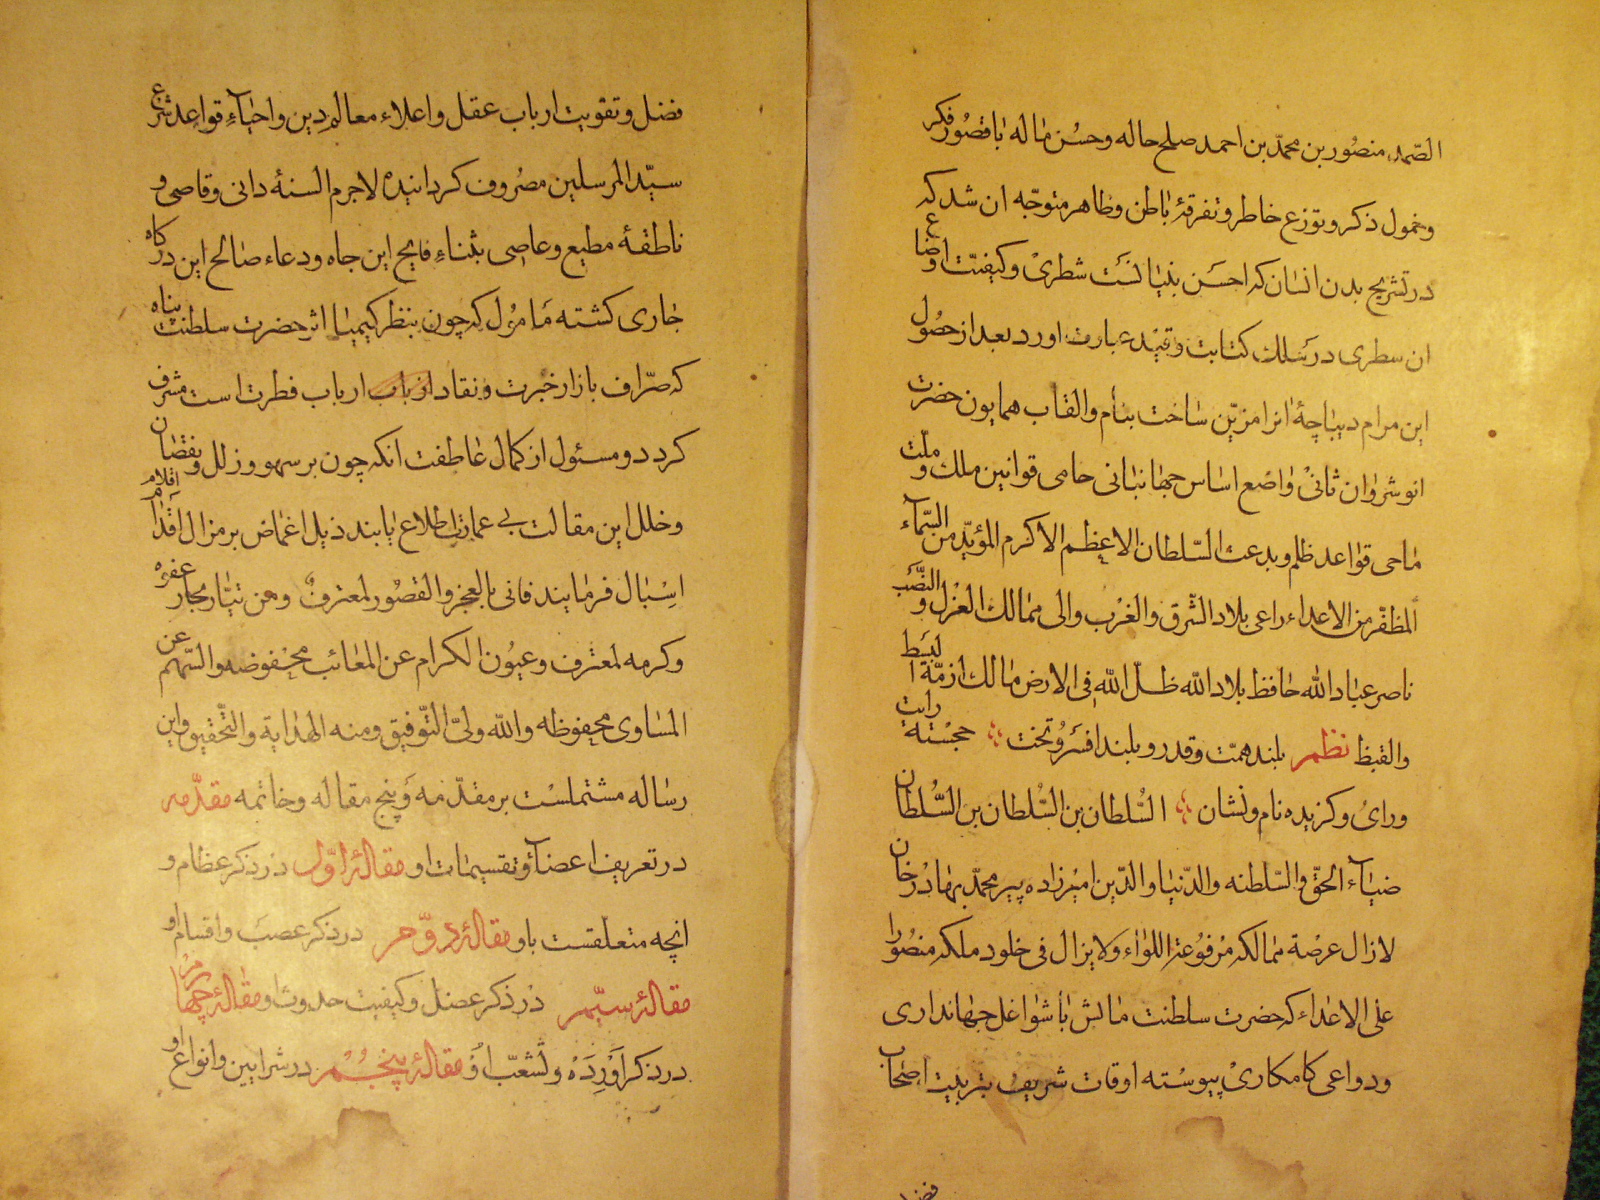 الصمد منصور بن محمد بن احمد صلح حاله وحسن ماله با قصور فکر
و خمول ذکر و توزع خاطر و تفرقهٔ باطن و ظاهر متوجه ان شد که
در تشریح بدن انسان که احسن بنیانست شطری و کیفیت اوضاع
ان سطری در سلک کتابت و قید عبارت اورد بعد از حصول
این مرام دیباچهٔ انرا مزین ساخت بنام و القاب همایون حضرت
انوشروان ثانی واضع اساس جهانبانی حامی قوانین ملک و ملت
ماحی قواعد ظلم و بدعت السلطان الاعظم الاکرم المؤید من السماء
المظفر من الاعداء راعی بلاد الشرق و الغرب والی ممالک العزل و النصب
ناصر عباد الله حافظ بلاد الله ظل الله فی الارض مالک ازمة البسط
والقبظ نظم بلند همت و قدر و بلند افسر و تخت خجسته رایت
و رای و کزیده نام و نشان السلطان بن السلطان بن السلطان
ضیاء الحق و السلطنه والدنیا والدین امیرزاده پیر محمد بهادر خان
لا زال عرصة ممالکه مرفوعة اللواء و لا یزال فی خلود ملکه منصورا
علی الاعداء که حضرت سلطنت مابش با شواغل جهانداری
و دواعی کامکاری پیوسته اوقات شریف بتربیت اصحاب
فضل
فضل و تقویت ارباب عقل و اعلاء معالم دین و احیاء قواعد شرع
سید المرسلین مصروف کردانیده لاجرم السنهٔ دانی و قاصی و
ناطقهٔ مطیع و عاصی بثناء فایح این جاه و دعاء صالح این درکاه
جاری کشته مامول که چون بنظر کیمیا اثر حضرت سلطنت پناه
که صراف بازار خبرت و نقاد ارباب ارباب فطرت است مشرف
کردد و مسئول از کمال عاطفت انکه چون بر سهو و زلل و نقصان
و خلل این مقالت بی عمارت اطلاع یابند ذیل اغماض بر مزال اقدام اقلام
اسبال فرمایند فانی بالعجز و القصور لمعترف و من تیار بحار عفوه
و کرمه لمغترف و عیون الکرام عن المعائب مخفوضه والسنهم عن
المساوی محفوظه والله ولی التوفیق و منه الهدایة والتحقیق و این
رساله مشتملست بر مقدمه و پنج مقاله و خاتمه مقدمه
در تعریف اعضاء و تقسیمات او مقالهٔ اول در ذکر عظام و
انچه متعلقست باو مقالهٔ دوم در ذکر عصب و اقسام او
مقالهٔ سیم در ذکر عضل و کیفیت حدوث او مقالهٔ چهارم
در ذکر اورده و تشعب او مقالهٔ پنجم در شرایین و انواع او